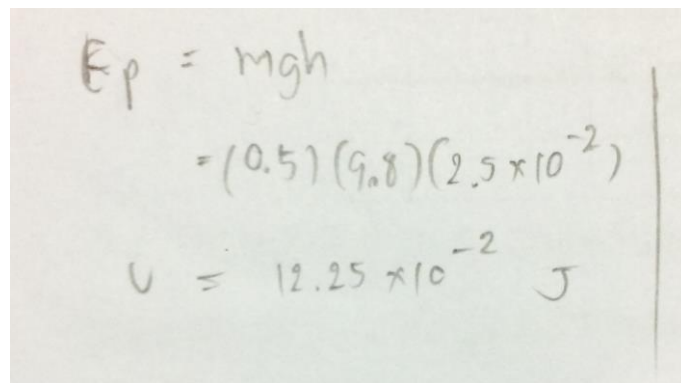 Ep = mgh
= (0.5) (9.8) (2.5 × 10⁻²)
U = 12.25 × 10⁻² J